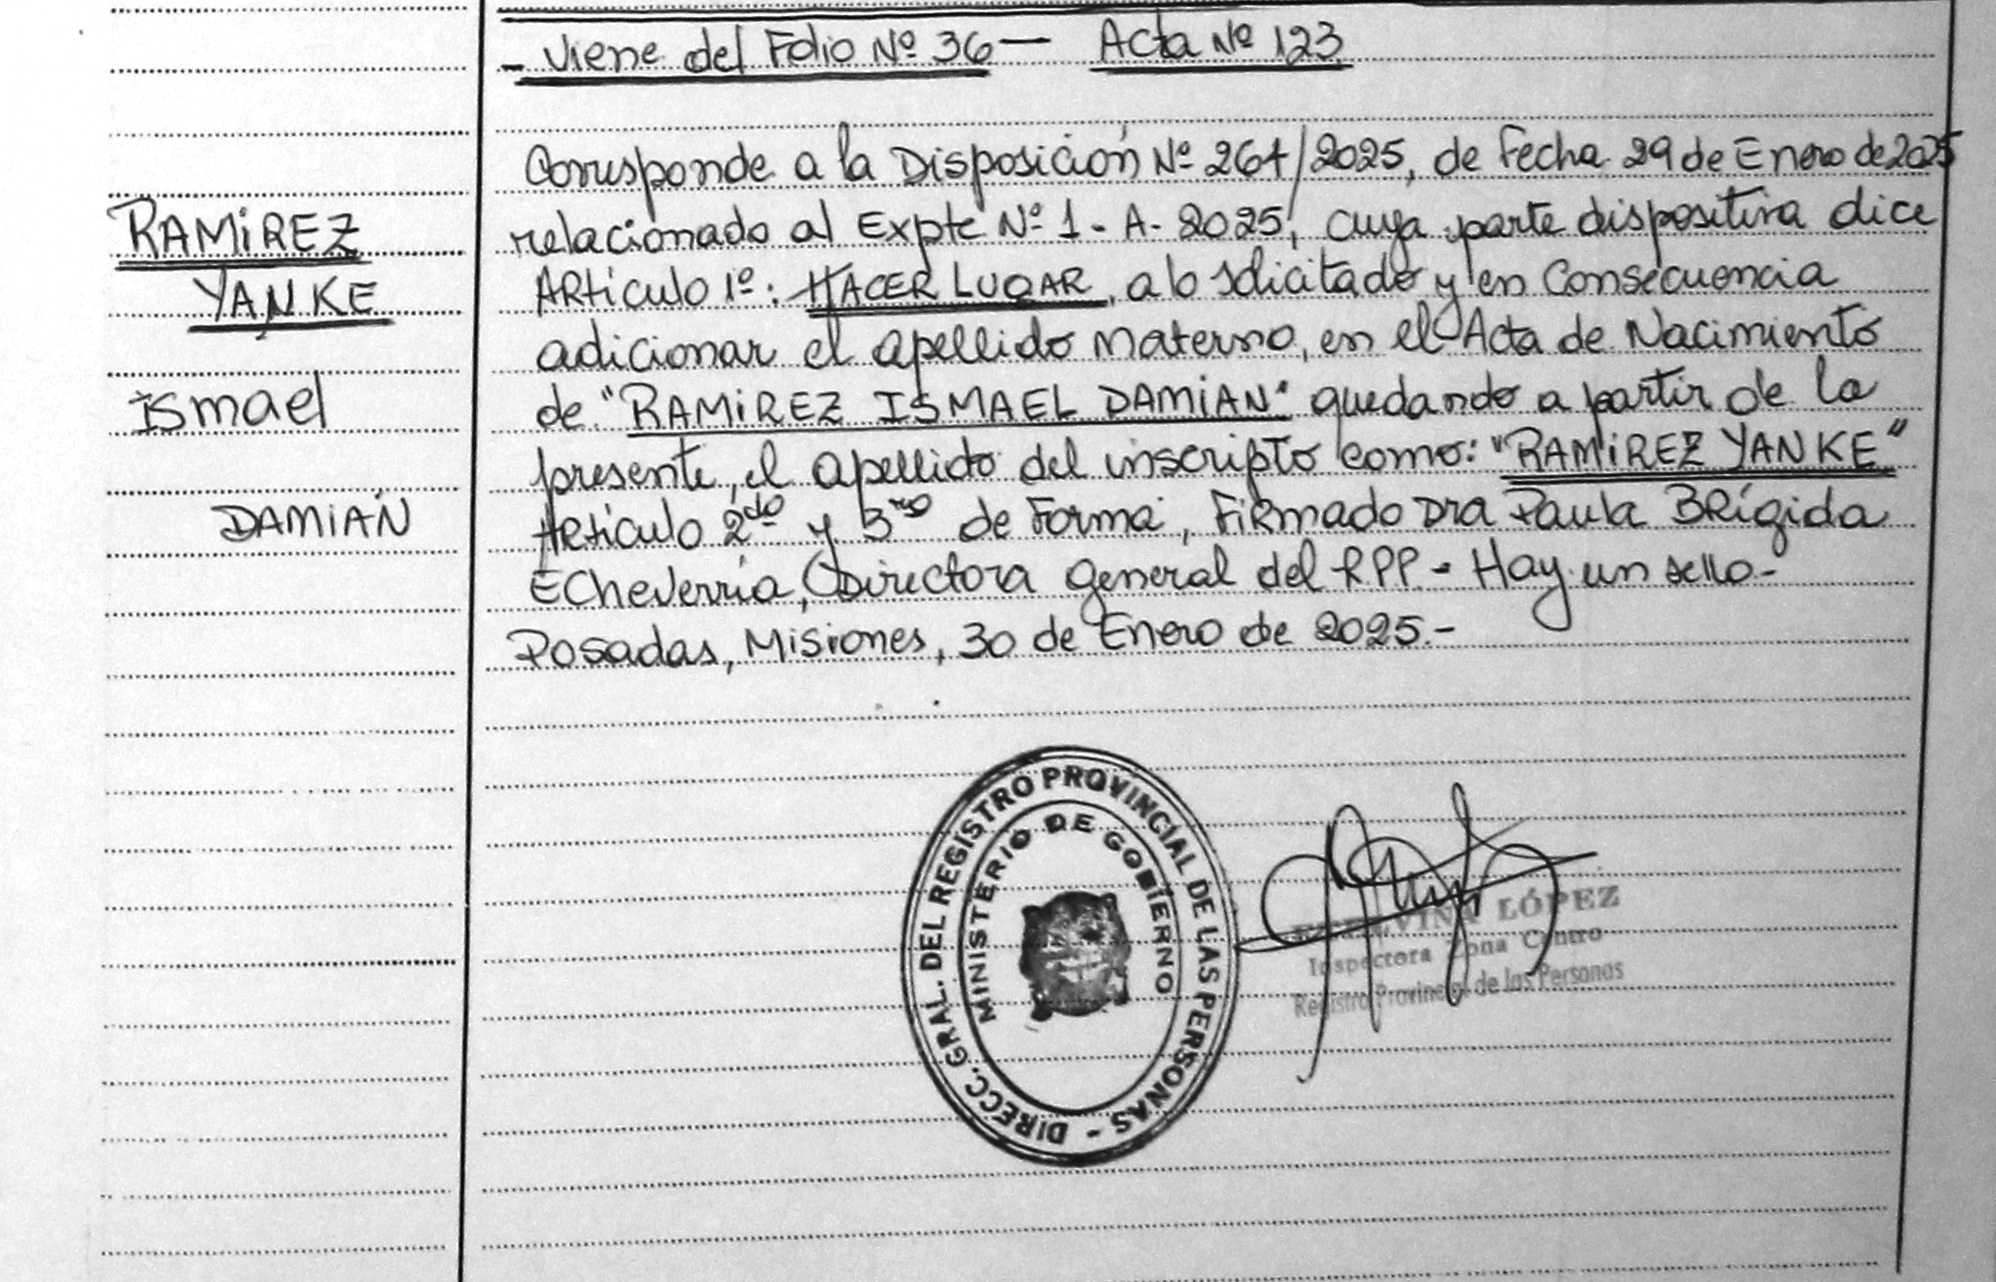 - Viene del Folio Nº 36 — Acta Nº 123
RAMIREZ
YANKE
ismael
DAMIÁN
Corresponde a la Disposición Nº 264/2025, de Fecha 29 de Enero de 2025
relacionado al Expte Nº 1 - A - 2025, cuya parte dispositiva dice
ARticulo 1º: HACER LUGAR, a lo solicitado y en Consecuencia
adicionar el apellido Materno, en el Acta de Nacimiento
de "RAMIREZ ISMAEL DAMIAN" quedando a partir de la
presente, el apellido del inscripto como: "RAMIREZ YANKE"
Articulo 2do y 3ro de Forma, Firmado Dra Paula BRígida
EcheVerría, Directora general del RPP - Hay un sello -
Posadas, Misiones, 30 de Enero de 2025.-
DIRECC. GRAL. DEL REGISTRO PROVINCIAL DE LAS PERSONAS -
MINISTERIO DE GOBIERNO
LÓPEZ
Inspectora Zona Centro
Registro Provincial de las Personas